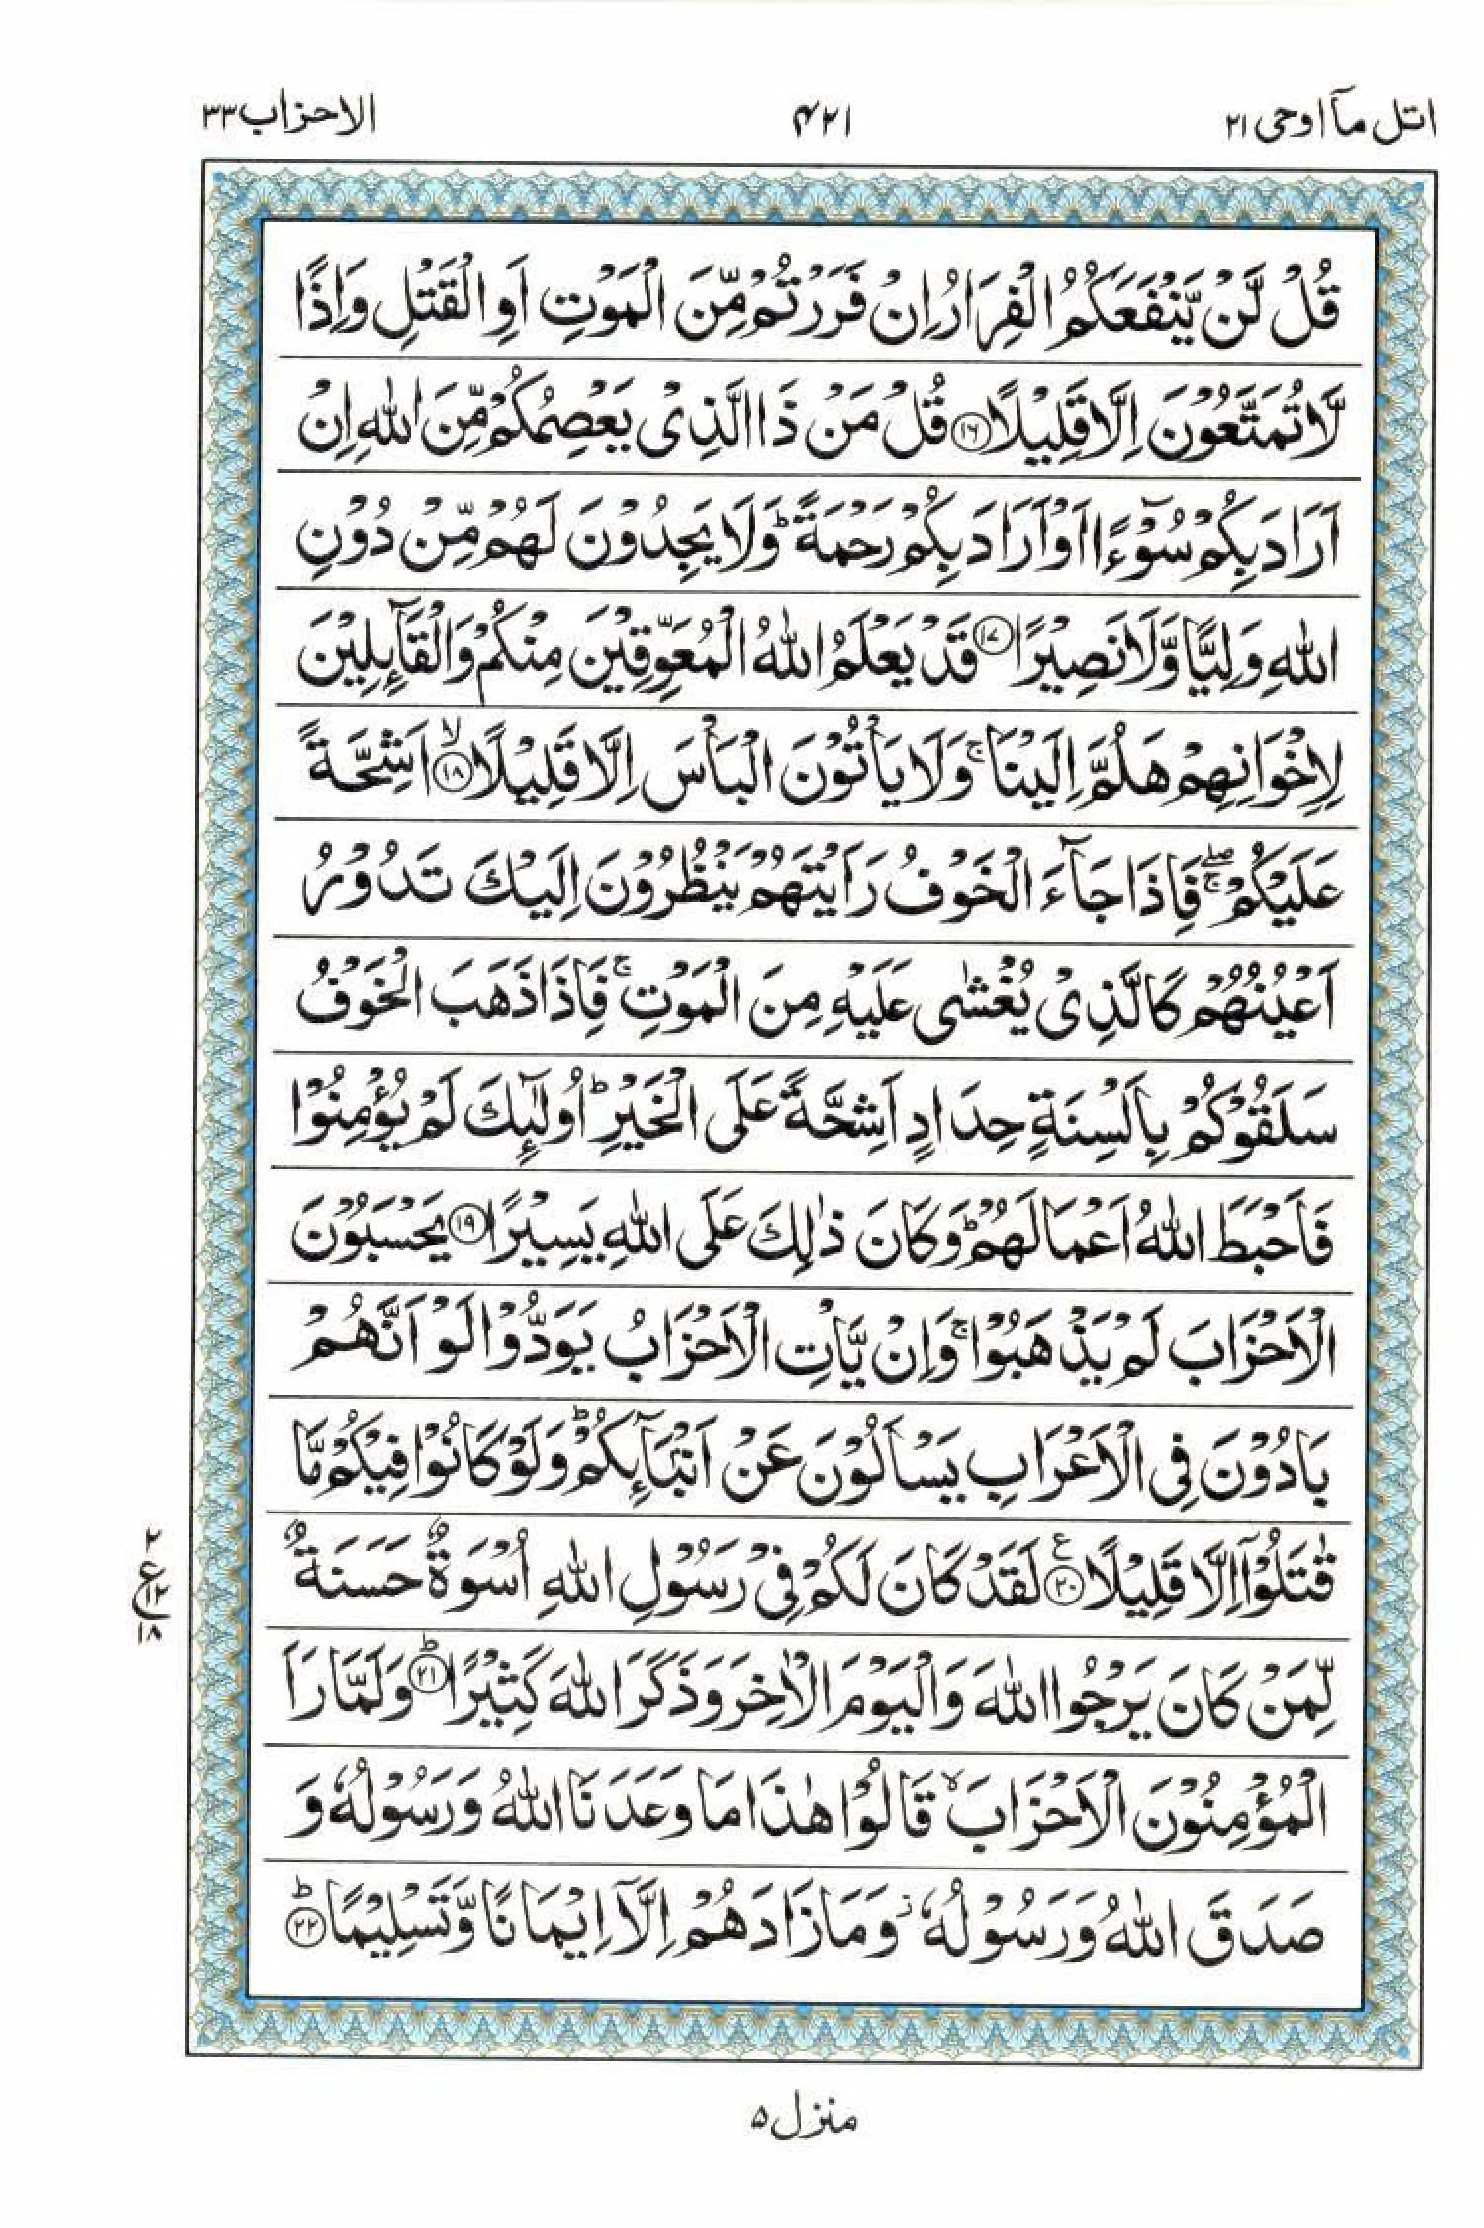 اتل مآ اوحی ۲۱
۴۲۱
الاحزاب ۳۳
قُلْ لَّنْ يَّنْفَعَكُمُ الْفِرَارُ اِنْ فَرَرْتُمْ مِّنَ الْمَوْتِ اَوِ الْقَتْلِ وَاِذًا
لَّا تُمَتَّعُوْنَ اِلَّا قَلِيْلًا ۝۱۶ قُلْ مَنْ ذَا الَّذِىْ يَعْصِمُكُمْ مِّنَ اللّٰهِ اِنْ
اَرَادَ بِكُمْ سُوْٓءًا اَوْ اَرَادَ بِكُمْ رَحْمَةً ؕ وَلَا يَجِدُوْنَ لَهُمْ مِّنْ دُوْنِ
اللّٰهِ وَلِيًّا وَّلَا نَصِيْرًا ۝۱۷ قَدْ يَعْلَمُ اللّٰهُ الْمُعَوِّقِيْنَ مِنْكُمْ وَالْقَآئِلِيْنَ
لِاِخْوَانِهِمْ هَلُمَّ اِلَيْنَا ۚ وَلَا يَاْتُوْنَ الْبَاْسَ اِلَّا قَلِيْلًا ۙ۝۱۸ اَشِحَّةً
عَلَيْكُمْ ۖۚ فَاِذَا جَآءَ الْخَوْفُ رَاَيْتَهُمْ يَنْظُرُوْنَ اِلَيْكَ تَدُوْرُ
اَعْيُنُهُمْ كَالَّذِىْ يُغْشٰى عَلَيْهِ مِنَ الْمَوْتِ ۚ فَاِذَا ذَهَبَ الْخَوْفُ
سَلَقُوْكُمْ بِاَلْسِنَةٍ حِدَادٍ اَشِحَّةً عَلَى الْخَيْرِ ؕ اُولٰٓئِكَ لَمْ يُؤْمِنُوْا
فَاَحْبَطَ اللّٰهُ اَعْمَالَهُمْ ؕ وَكَانَ ذٰلِكَ عَلَى اللّٰهِ يَسِيْرًا ۝۱۹ يَحْسَبُوْنَ
الْاَحْزَابَ لَمْ يَذْهَبُوْا ۚ وَاِنْ يَّاْتِ الْاَحْزَابُ يَوَدُّوْا لَوْ اَنَّهُمْ
بَادُوْنَ فِى الْاَعْرَابِ يَسْاَلُوْنَ عَنْ اَنْۢبَآئِكُمْ ؕ وَلَوْ كَانُوْا فِيْكُمْ مَّا
قٰتَلُوْۤا اِلَّا قَلِيْلًا ۝۲۰ ع لَقَدْ كَانَ لَكُمْ فِىْ رَسُوْلِ اللّٰهِ اُسْوَةٌ حَسَنَةٌ
لِّمَنْ كَانَ يَرْجُوا اللّٰهَ وَالْيَوْمَ الْاٰخِرَ وَذَكَرَ اللّٰهَ كَثِيْرًا ؕ۝۲۱ وَلَمَّا رَاَ
الْمُؤْمِنُوْنَ الْاَحْزَابَ ۙ قَالُوْا هٰذَا مَا وَعَدَنَا اللّٰهُ وَرَسُوْلُهٗ وَ
صَدَقَ اللّٰهُ وَرَسُوْلُهٗ ز وَمَا زَادَهُمْ اِلَّاۤ اِيْمَانًا وَّتَسْلِيْمًا ؕ۝۲۲
۲
ع ۱۲
۱۸
منزل ۵